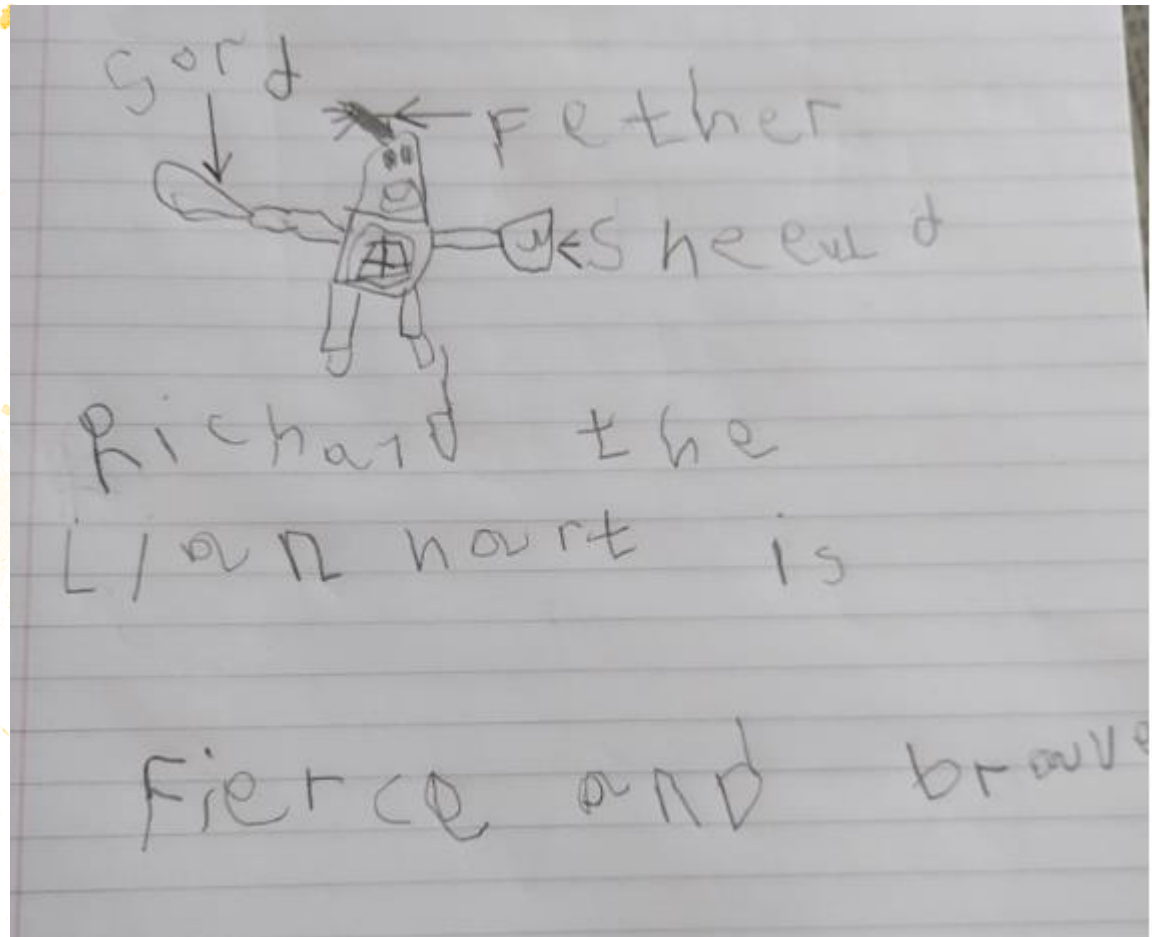 Sord
Fether
Sheeuld
Richard the
Lian hart is
Fierce and brave